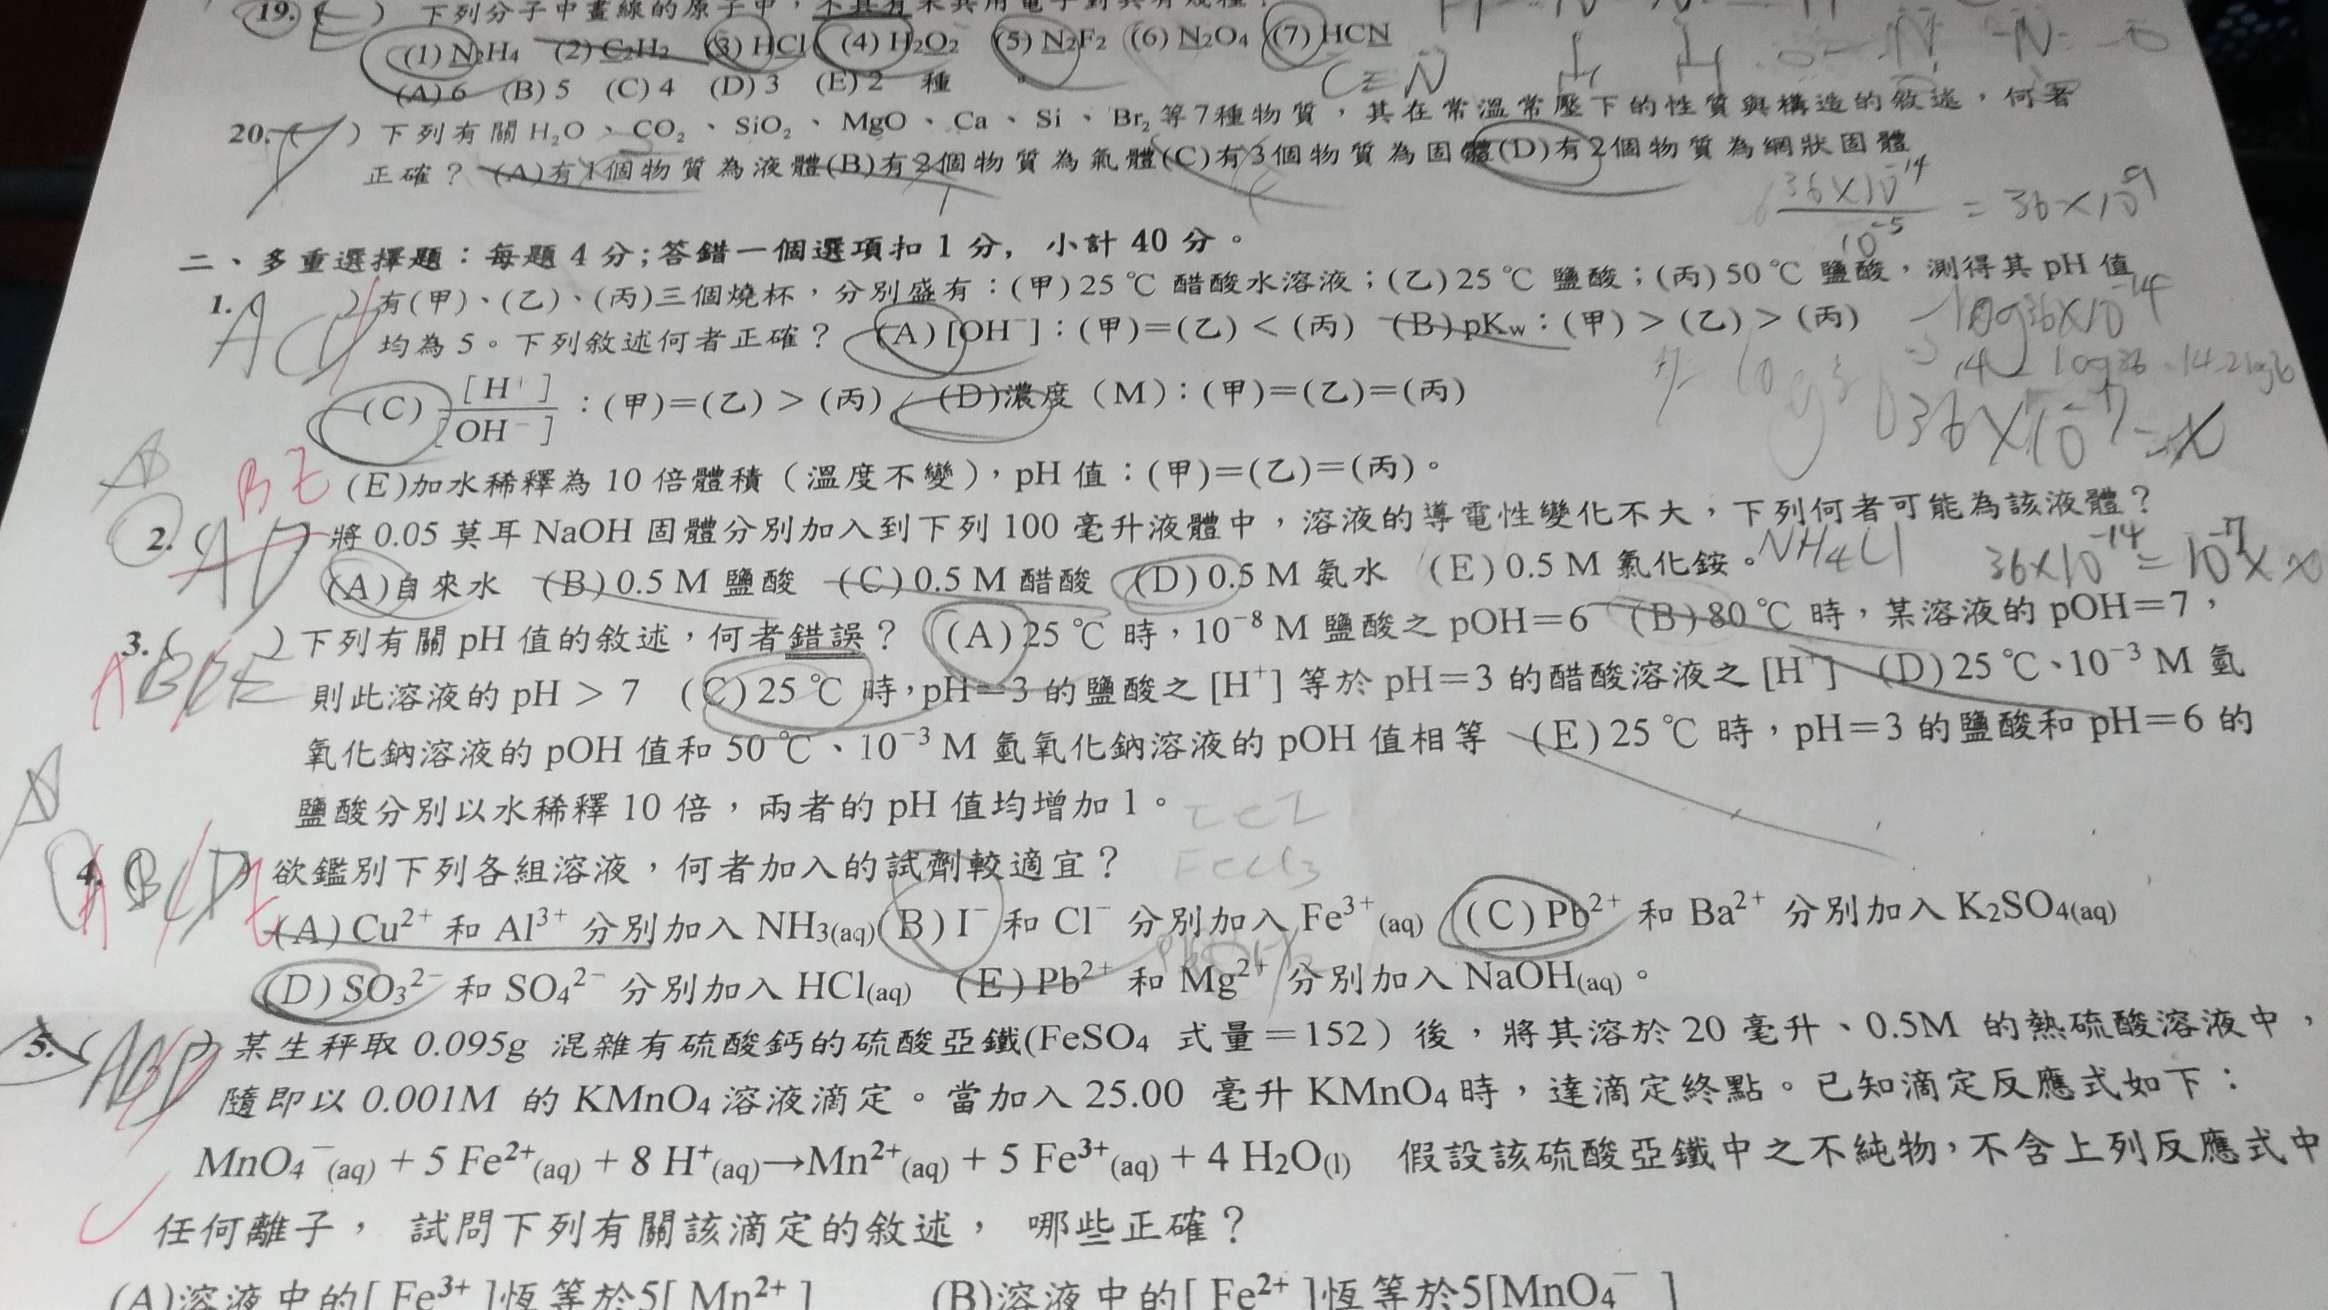 19. ( E ) 下列分子中畫線的原子中，不具有未共用電子對共有幾種？
(1) N2H4 (2) C2H2 (3) HCl (4) H2O2 (5) N2F2 (6) N2O4 (7) HCN
(A) 6 (B) 5 (C) 4 (D) 3 (E) 2 種
C≡N
20. ( ) 下列有關 H2O、CO2、SiO2、MgO、Ca、Si、Br2 等 7 種物質，其在常溫常壓下的性質與構造的敘述，何者
正確？ (A)有1個物質為液體(B)有2個物質為氣體(C)有3個物質為固體(D)有2個物質為網狀固體
36×10^-14 / 10^-5 = 36×10^-9
二、多重選擇題：每題 4 分;答錯一個選項扣 1 分, 小計 40 分。
1. ( ACD ) 有(甲)、(乙)、(丙)三個燒杯，分別盛有：(甲) 25 ℃ 醋酸水溶液；(乙) 25 ℃ 鹽酸；(丙) 50 ℃ 鹽酸，測得其 pH 值
均為 5。下列敘述何者正確？ (A) [OH⁻]：(甲)＝(乙)＜(丙) (B) pKw：(甲)＞(乙)＞(丙)
-log36×10^-14
(C) [H⁺]/[OH⁻]：(甲)＝(乙)＞(丙) (D)濃度（M）：(甲)＝(乙)＝(丙)
36×10^-7 = x
(E)加水稀釋為 10 倍體積（溫度不變），pH 值：(甲)＝(乙)＝(丙)。
BE
2. ( AD ) 將 0.05 莫耳 NaOH 固體分別加入到下列 100 毫升液體中，溶液的導電性變化不大，下列何者可能為該液體？
(A)自來水 (B) 0.5 M 鹽酸 (C) 0.5 M 醋酸 (D) 0.5 M 氨水 (E) 0.5 M 氯化銨。NH4Cl
36×10^-14 = 10^-7 × x
3. ( ) 下列有關 pH 值的敘述，何者錯誤？ (A) 25 ℃ 時，10⁻⁸ M 鹽酸之 pOH＝6 (B) 80 ℃ 時，某溶液的 pOH＝7，
則此溶液的 pH ＞ 7 (C) 25 ℃ 時，pH＝3 的鹽酸之 [H⁺] 等於 pH＝3 的醋酸溶液之 [H⁺] (D) 25 ℃、10⁻³ M 氫
氧化鈉溶液的 pOH 值和 50 ℃、10⁻³ M 氫氧化鈉溶液的 pOH 值相等 (E) 25 ℃ 時，pH＝3 的鹽酸和 pH＝6 的
鹽酸分別以水稀釋 10 倍，兩者的 pH 值均增加 1。
FeCl3
4. ( ) 欲鑑別下列各組溶液，何者加入的試劑較適宜？
(A) Cu²⁺ 和 Al³⁺ 分別加入 NH3(aq) (B) I⁻ 和 Cl⁻ 分別加入 Fe³⁺(aq) (C) Pb²⁺ 和 Ba²⁺ 分別加入 K2SO4(aq)
(D) SO3²⁻ 和 SO4²⁻ 分別加入 HCl(aq) (E) Pb²⁺ 和 Mg²⁺ 分別加入 NaOH(aq)。
5. ( ABD ) 某生秤取 0.095g 混雜有硫酸鈣的硫酸亞鐵(FeSO4 式量＝152）後，將其溶於 20 毫升、0.5M 的熱硫酸溶液中，
隨即以 0.001M 的 KMnO4 溶液滴定。當加入 25.00 毫升 KMnO4 時，達滴定終點。已知滴定反應式如下：
MnO4⁻(aq) + 5 Fe²⁺(aq) + 8 H⁺(aq)→Mn²⁺(aq) + 5 Fe³⁺(aq) + 4 H2O(l) 假設該硫酸亞鐵中之不純物，不含上列反應式中
任何離子， 試問下列有關該滴定的敘述， 哪些正確？
(A)溶液中的[ Fe³⁺ ]恆等於5[ Mn²⁺ ] (B)溶液中的[ Fe²⁺ ]恆等於5[MnO4⁻ ]